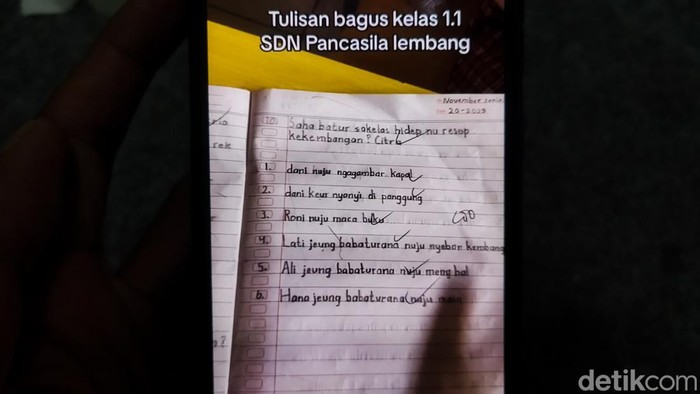 Tulisan bagus kelas 1.1
SDN Pancasila lembang
November senin
20-2023
10. Saha batur sakelas hidep nu resep
kekembangan? Citra
1. dani nuju ngagambar kapal
2. dani keur nyanyi di panggung
3. Roni nuju maca buku
4. Lati jeung babaturana nuju nyebar kembang
5. Ali jeung babaturana nuju meng bal
6. Hana jeung babaturana nuju main
rek
?
detikcom